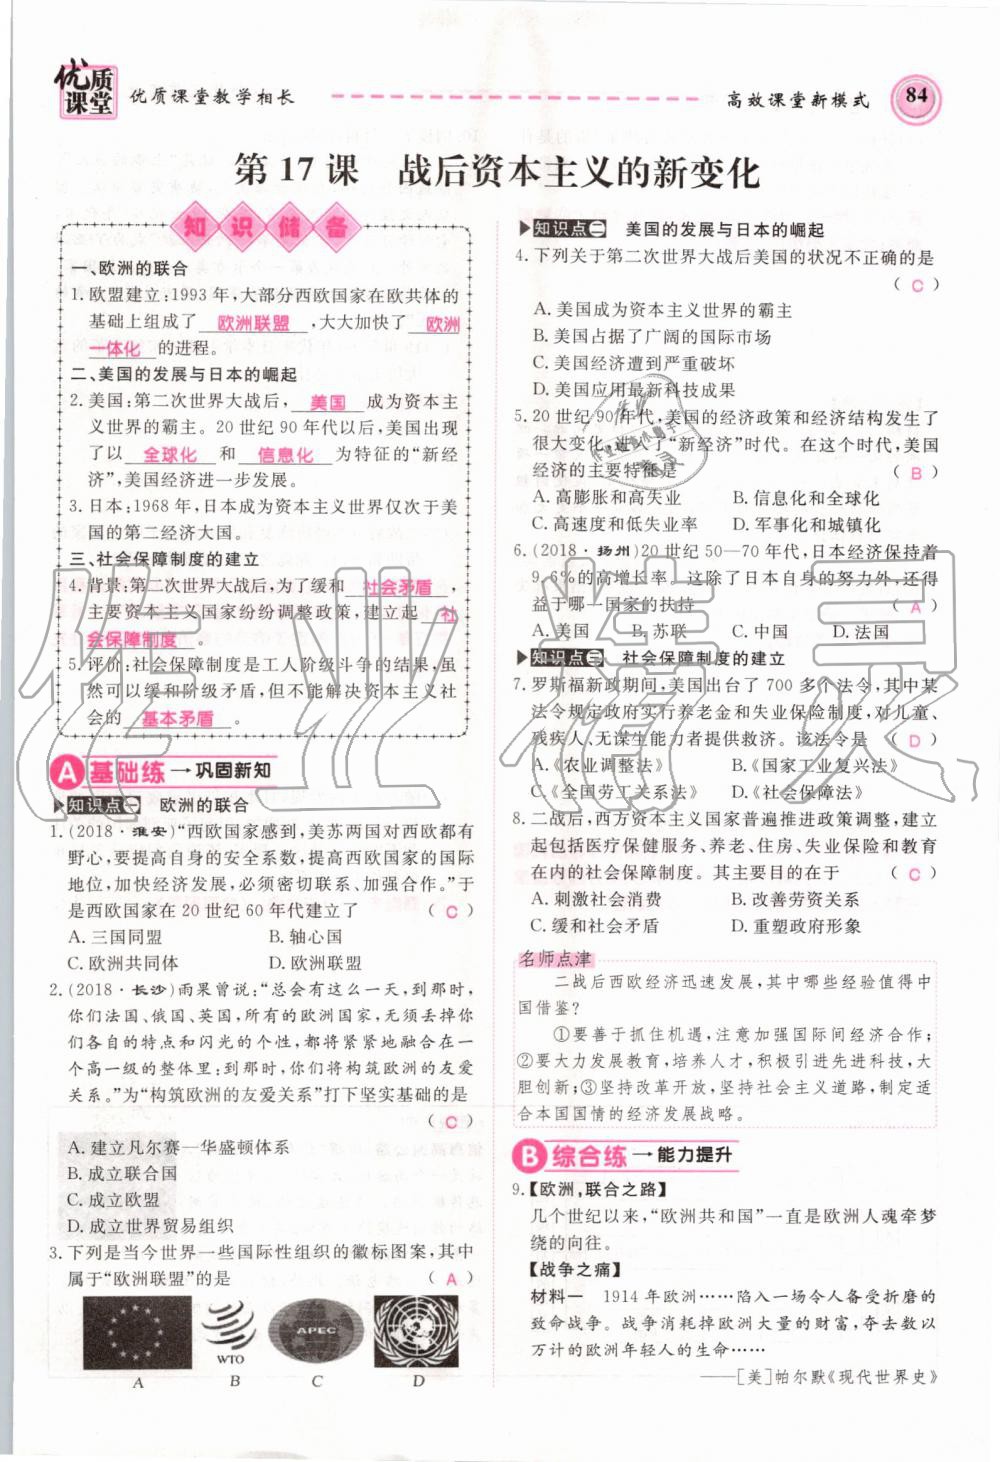 优质课堂
优质课堂教学相长
高效课堂新模式
84
第17课 战后资本主义的新变化
知识储备
一、欧洲的联合
1. 欧盟建立:1993年,大部分西欧国家在欧共体的
基础上组成了 欧洲联盟 ,大大加快了 欧洲
一体化 的进程。
二、美国的发展与日本的崛起
2. 美国:第二次世界大战后, 美国 成为资本主
义世界的霸主。20世纪90年代以后,美国出现
了以 全球化 和 信息化 为特征的“新经
济”,美国经济进一步发展。
3. 日本:1968年,日本成为资本主义世界仅次于美
国的第二经济大国。
三、社会保障制度的建立
4. 背景:第二次世界大战后,为了缓和 社会矛盾 ,
主要资本主义国家纷纷调整政策,建立起 社
会保障制度 。
5. 评价:社会保障制度是工人阶级斗争的结果,虽
然可以缓和阶级矛盾,但不能解决资本主义社
会的 基本矛盾 。
A 基础练→巩固新知
知识点一 欧洲的联合
1. (2018·淮安)“西欧国家感到,美苏两国对西欧都有
野心,要提高自身的安全系数,提高西欧国家的国际
地位,加快经济发展,必须密切联系、加强合作。”于
是西欧国家在20世纪60年代建立了 ( C )
A. 三国同盟 B. 轴心国
C. 欧洲共同体 D. 欧洲联盟
2. (2018·长沙)雨果曾说:“总会有这么一天,到那时,
你们法国、俄国、英国,所有的欧洲国家,无须丢掉你
们各自的特点和闪光的个性,都将紧紧地融合在一
个高一级的整体里;到那时,你们将构筑欧洲的友爱
关系。”为“构筑欧洲的友爱关系”打下坚实基础的是
( C )
A. 建立凡尔赛—华盛顿体系
B. 成立联合国
C. 成立欧盟
D. 成立世界贸易组织
3. 下列是当今世界一些国际性组织的徽标图案,其中
属于“欧洲联盟”的是 ( A )
WTO
APEC
A B C D
知识点二 美国的发展与日本的崛起
4. 下列关于第二次世界大战后美国的状况不正确的是
( C )
A. 美国成为资本主义世界的霸主
B. 美国占据了广阔的国际市场
C. 美国经济遭到严重破坏
D. 美国应用最新科技成果
5. 20世纪90年代,美国的经济政策和经济结构发生了
很大变化,进入了“新经济”时代。在这个时代,美国
经济的主要特征是 ( B )
A. 高膨胀和高失业 B. 信息化和全球化
C. 高速度和低失业率 D. 军事化和城镇化
6. (2018·扬州)20世纪50—70年代,日本经济保持着
9.6%的高增长率。这除了日本自身的努力外,还得
益于哪一国家的扶持 ( A )
A. 美国 B. 苏联 C. 中国 D. 法国
知识点三 社会保障制度的建立
7. 罗斯福新政期间,美国出台了700多个法令,其中某
法令规定政府实行养老金和失业保险制度,对儿童、
残疾人、无谋生能力者提供救济。该法令是 ( D )
A.《农业调整法》 B.《国家工业复兴法》
C.《全国劳工关系法》 D.《社会保障法》
8. 二战后,西方资本主义国家普遍推进政策调整,建立
起包括医疗保健服务、养老、住房、失业保险和教育
在内的社会保障制度。其主要目的在于 ( C )
A. 刺激社会消费 B. 改善劳资关系
C. 缓和社会矛盾 D. 重塑政府形象
名师点津
二战后西欧经济迅速发展,其中哪些经验值得中
国借鉴?
①要善于抓住机遇,注意加强国际间经济合作;
②要大力发展教育,培养人才,积极引进先进科技,大
胆创新;③坚持改革开放,坚持社会主义道路,制定适
合本国国情的经济发展战略。
B 综合练→能力提升
9.【欧洲,联合之路】
几个世纪以来,“欧洲共和国”一直是欧洲人魂牵梦
绕的向往。
【战争之痛】
材料一 1914年欧洲……陷入一场令人备受折磨的
致命战争。战争消耗掉欧洲大量的财富,夺去数以
万计的欧洲年轻人的生命……
——[美]帕尔默《现代世界史》
作业精灵